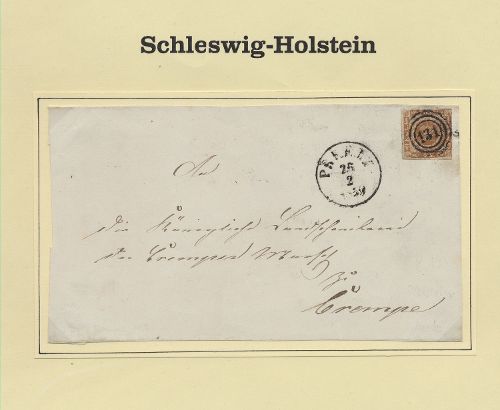 Schleswig-Holstein
131
25
2
An
die Königliche Landschreiberei
der Cremper Marsch
zu
Crempe